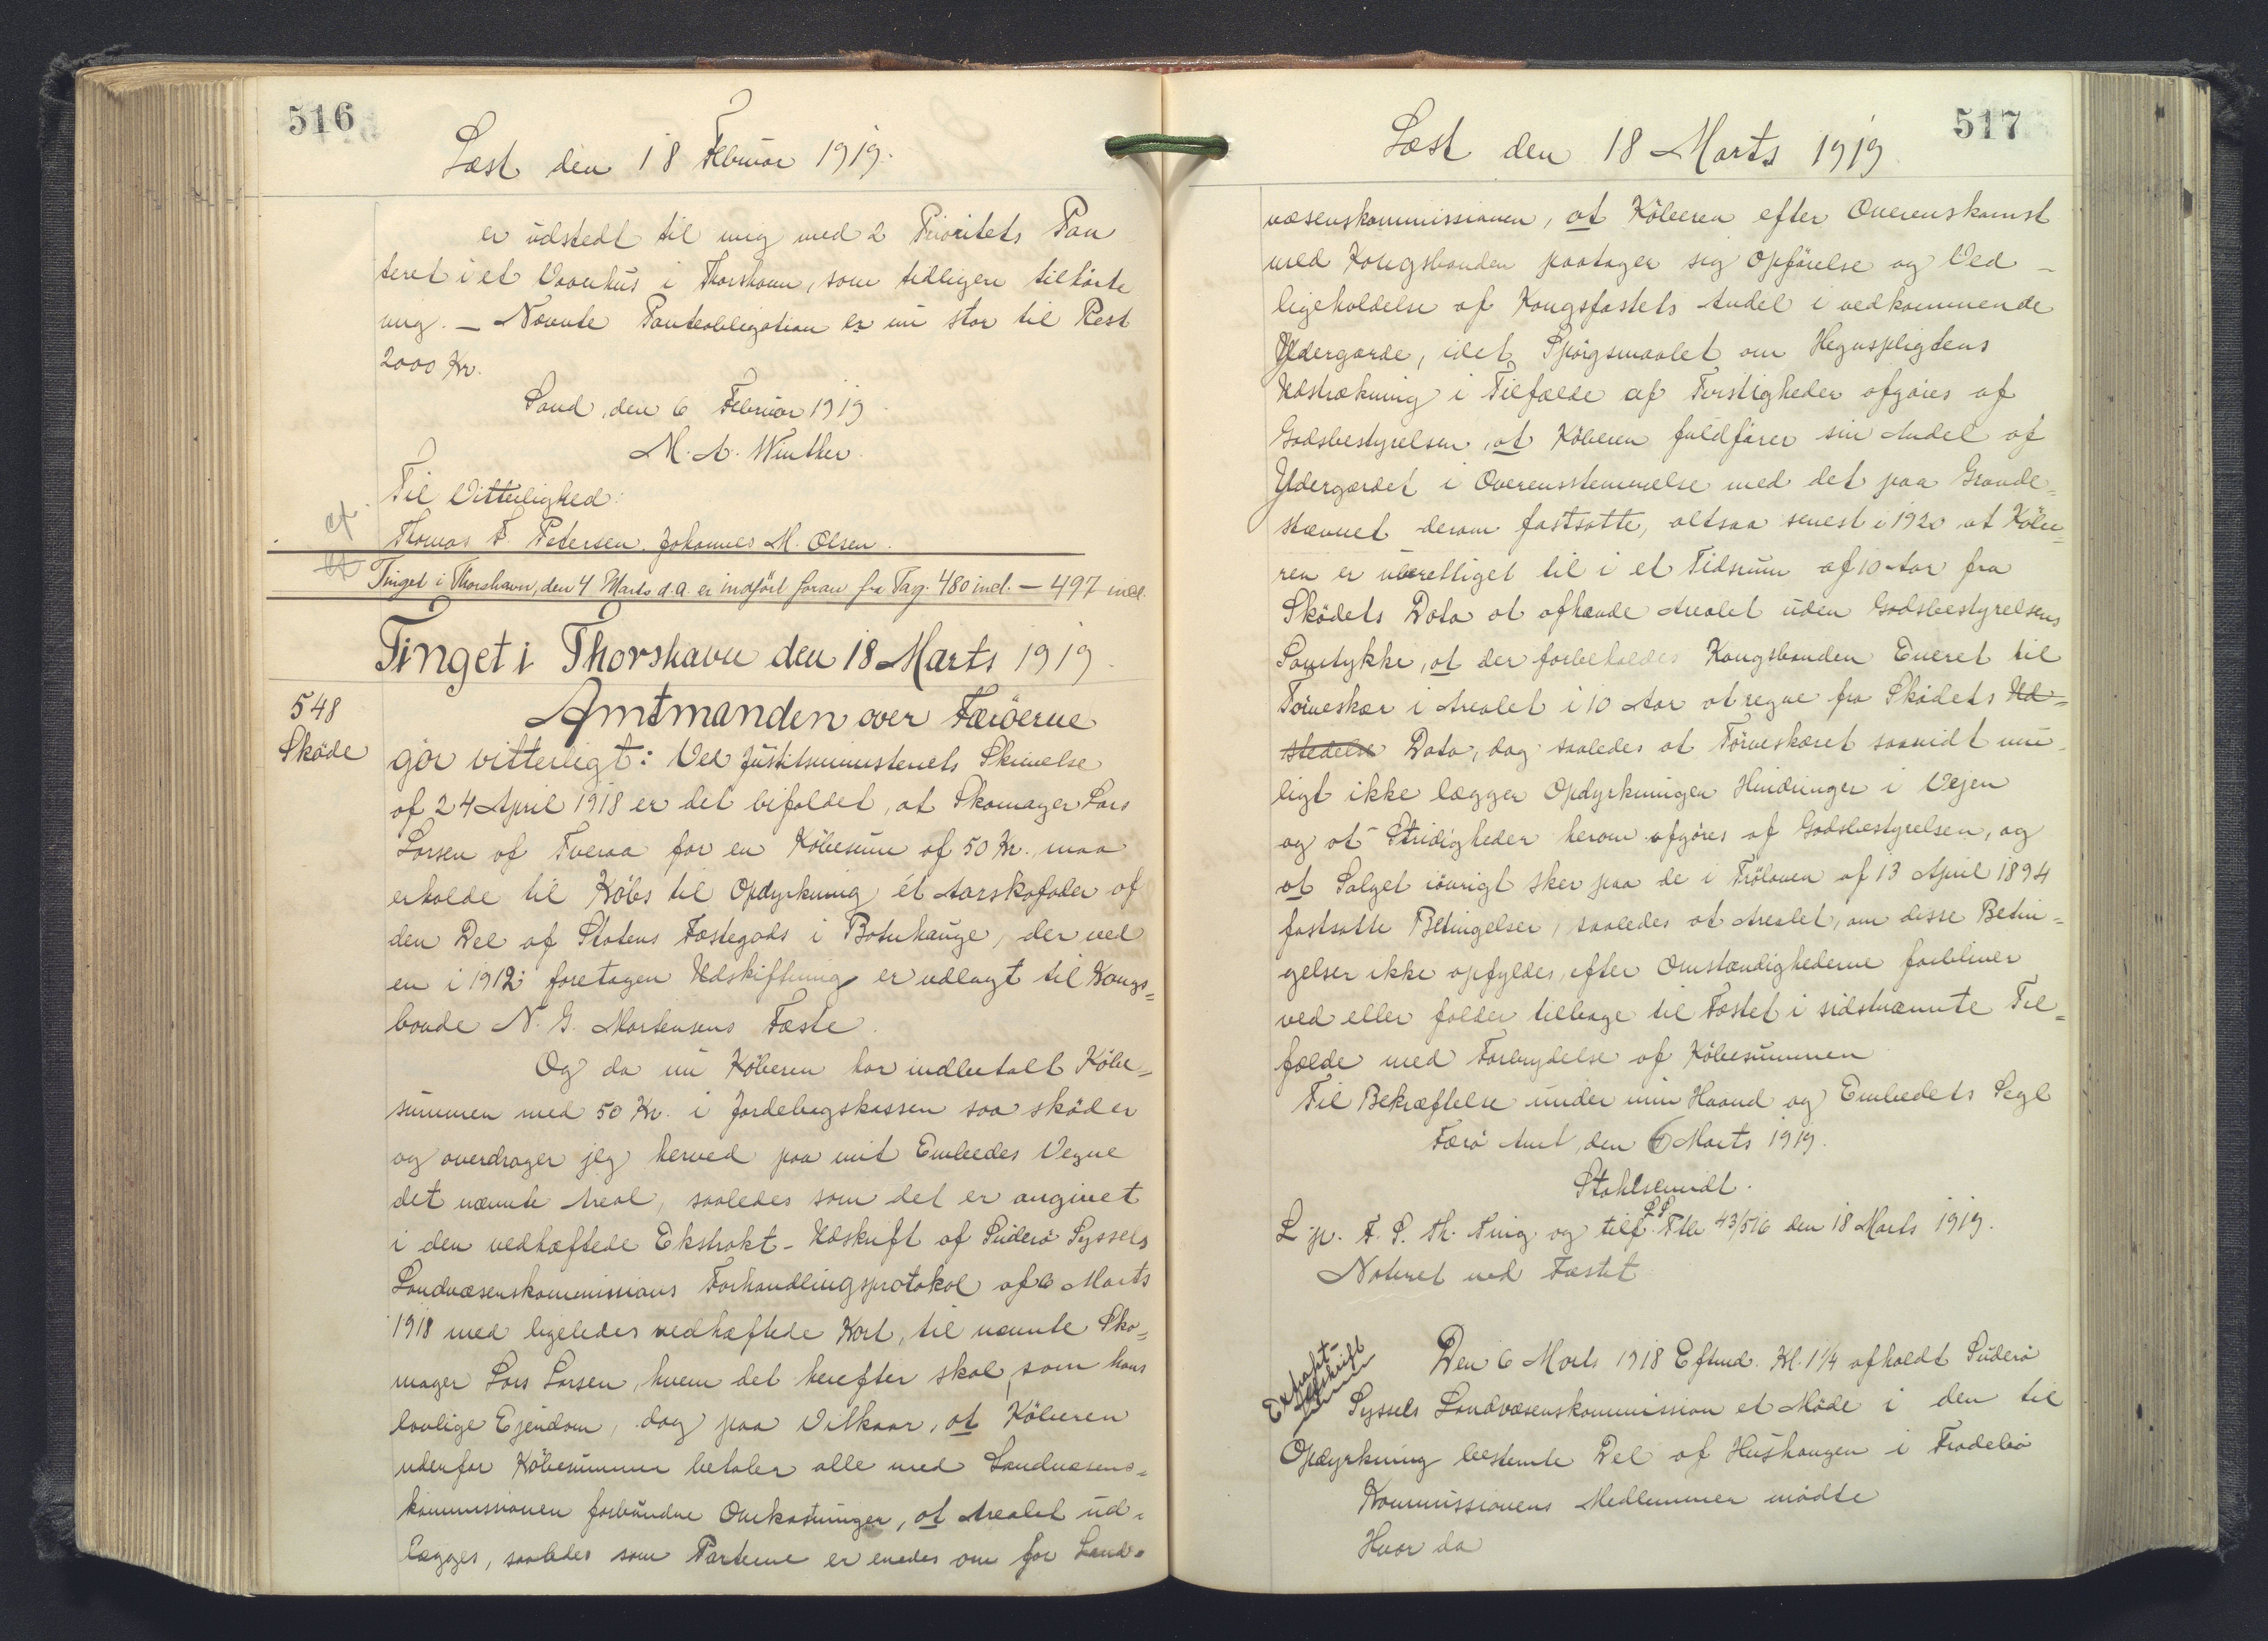 516
Læst den 18 Februar 1919.
er udstedt til mig med 2 Prioritets Pan
teret i et Vaanhus i Thorshavn, som tidligere tilhörte
mig. – Nævnte Panteobligation er nu stor til Rest
2000 Kr.
Sand, den 6 Februar 1919.
M. A. Winther.
Til Vitterlighed:
Thomas F. Petersen. Johannes M. Olsen.
Tinget i Thorshavn, den 4 Marts d.A. er indfört foran fra Pag. 480 incl. – 497 incl.
Tinget i Thorshavn den 18 Marts 1919.
548
Sköde
Amtmanden over Færöerne
gör vitterligt: Ved Justitsministeriets Skrivelse
af 24 April 1918 er det bifaldet, at Skomager Lars
Larsen af Tveraa for en Köbesum af 50 Kr. maa
erholde til Köbs til Opdyrkning ét Aarskofoder af
den Del af Statens Fæstegods i Botnhauge, der ved
en i 1912 foretagen Udskiftning er udlagt til Kongs=
bonde N. G. Mortensens Fæste.
Og da nu Köberen har indbetalt Köbe=
summen med 50 Kr. i Jordebogskassen saa sköder
og overdrager jeg herved paa mit Embedes Vegne
det nævnte Areal, saaledes som det er angivet
i den vedhæftede Ekstrakt-Udskrift af Suderö Syssels
Landvæsenskommissions Forhandlingsprotokol af 6 Marts
1918 med ligeledes vedhæftede Kort, til nævnte Sko=
mager Lars Larsen, hvem det herefter skal, som hans
lovlige Ejendom, dog paa Vilkaar, at Köberen
udenfor Köbesummen betaler alle med Landvæsens=
kommissionen forbundne Omkostninger, at Arealet ud=
lægges, saaledes som Parterne er enedes om for Land=
517
Læst den 18 Marts 1919
væsenskommissionen, at Köberen efter Overenskomst
med Kongsbonden paatager sig Opförelse og Ved–
ligeholdelse af Kongsfæstets Andel i vedkommende
Ydergærde, idet Spörgsmaalet om Hegnspligtens
Udstrækning i Tilfælde af Torstigheder afgöres af
Godsbestyrelsen, at Köberen fuldförer sin Andel af
Ydergærdet i Overensstemmelse med det paa Grande=
stævnet derom fastsatte, altsaa senest i 1920 at Köbe=
ren er uberettiget til i et Tidsrum af 10 Aar fra
Sködets Dato at afhænde Arealet uden Godsbestyrelsens
Samtykke, at der forbeholdes Kongsbonden Eneret til
Törveskær i Arealet i 10 Aar at regne fra Sködets Ud=
stedelse Dato, dog saaledes at Törveskæret saavidt mu-
ligt ikke lægger Opdyrkningen Hindringer i Vejen
og at Stridigheder herom afgöres af Godsbestyrelsen, og
at Salget iövrigt sker paa de i Tröloven af 13 April 1894
fastsatte Betingelser, saaledes at Arealet, om disse Betin=
gelser ikke opfyldes, efter Omstændighederne forbliver
ved eller falder tilbage til Fæstet i sidstnævnte Til=
fælde med Forbrydelse af Köbesummen
Til Bekræftelse under min Haand og Embedets Segl
Færö Amt, den 6 Marts 1919.
Stahlschmidt.
LS
L p. F. S. Th. Ting og tilf. Ptb 43/516 den 18 Marts 1919.
Noteret ved Fæstet
Extrakt-
Udskrift
Den 6 Marts 1918 Eftmd. Kl. 1 1/4 afholdt Suderö
Syssels Landvæsenskommission et Möde i den til
Opdyrkning bestemte Del af Hushaugen i Frodebö
Kommissionens Medlemmer mödte
Hvor da